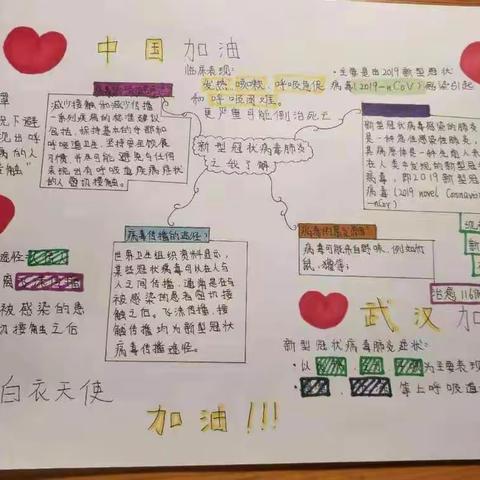 中国加油
临床表现:
发热、咳嗽、呼吸急促
和呼吸困难。
更严重可能倒治死亡
·主要是由2019新型冠状
病毒(2019-nCoV)感染引起
减少接触和减少传播
一系列疾病的标准建议
包括,保持基本的手部和
呼吸道卫生,坚持安全饮食
习惯,并尽可能避免与任何
表现出有呼吸道疾病症状
的人密切接触。
新型冠状病毒肺炎
之我了解
新型冠状病毒感染的肺炎
病毒,即2019新型冠状
病毒(2019 novel Coronavirus
-nCov)
罩
况下避
现出呼
病的人
接触"
病毒传播的途径:
世界卫生组织资料显示,
某些冠状病毒可以在人与
人之间传播,通常是在与
被感染的患者密切接
触之后。飞沫传播、接
触传播均为新型冠状
病毒传播途径。
病毒可能来自野味,例如竹
鼠、獾等;
途径:
离
被感染的患
切接触之后
治愈116例
武汉加
新型冠状病毒肺炎症状:
·以
为主要表现
等上呼吸道
白衣天使
加油!!!